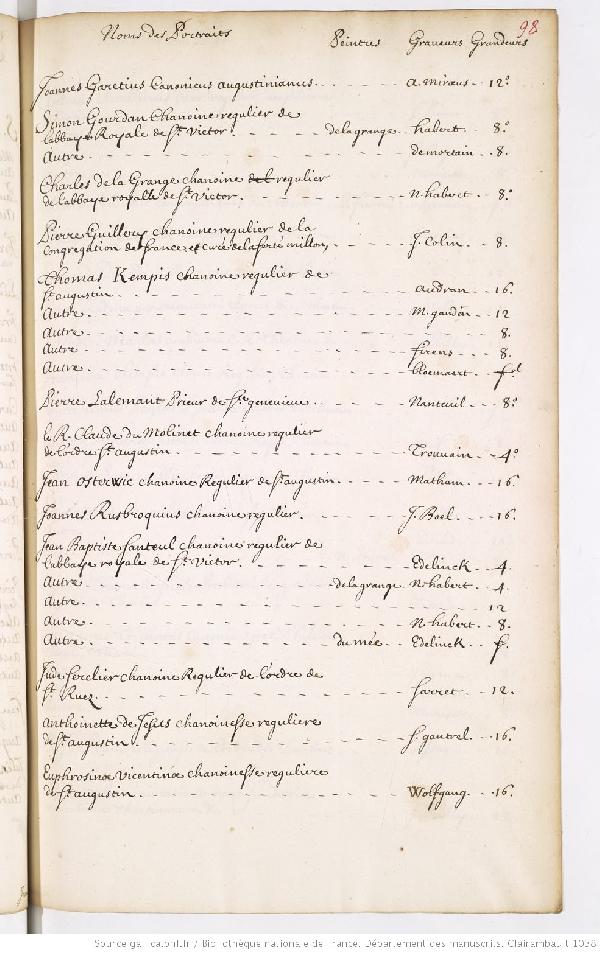 98
Noms des Portraits Peintres Graveurs Grandeurs
Joannes Garetius Canonicus augustinianus. a. miræus 12°
Simon Gourdan Chanoine regulier de
labbaye Royale de St. Victor. delagrange habert 8°
Autre demortain 8.
Charles de la Grange chanoine regulier
de labbaye royalle de St. Victor. N. habert 8°
Pierre Guillery chanoine regulier de la
Congregation de france et curé de la ferté millon, J. Colin 8.
Thomas Kempis chanoine regulier de
St. augustin audran 16.
Autre M. gandin 12
Autre 8.
Autre firens 8.
Autre bloemart fol
Pierre Lalemant Prieur de Ste. genevieve. Nanteuil 8°
le R. Claude du Molinet chanoine regulier
de l'ordre St. augustin Trouvain 4°
Jean Osterwic chanoine Regulier de St. augustin Matham 16.
Joannes Rusbroquius chanoine regulier. J. Bael 16.
Jean Baptiste Santeul chanoine regulier de
labbaye royale de St. Victor. Edelinck 4.
Autre delagrange N. habert 4.
Autre 12
Autre N. habert 8.
Autre dumée Edelinck f.
Jude Serclier chanoine Regulier de l'ordre de
St. Ruez Sarret 12.
Anthoinette de Jesus chanoinesse reguliere
de St. augustin f. gantrel 16.
Euphrosinæ Vicentinæ chanoinesse reguliere
de St. augustin Wolfgang 16.
Source gallica.bnf.fr / Bibliothèque nationale de France. Département des manuscrits. Clairambault 1038